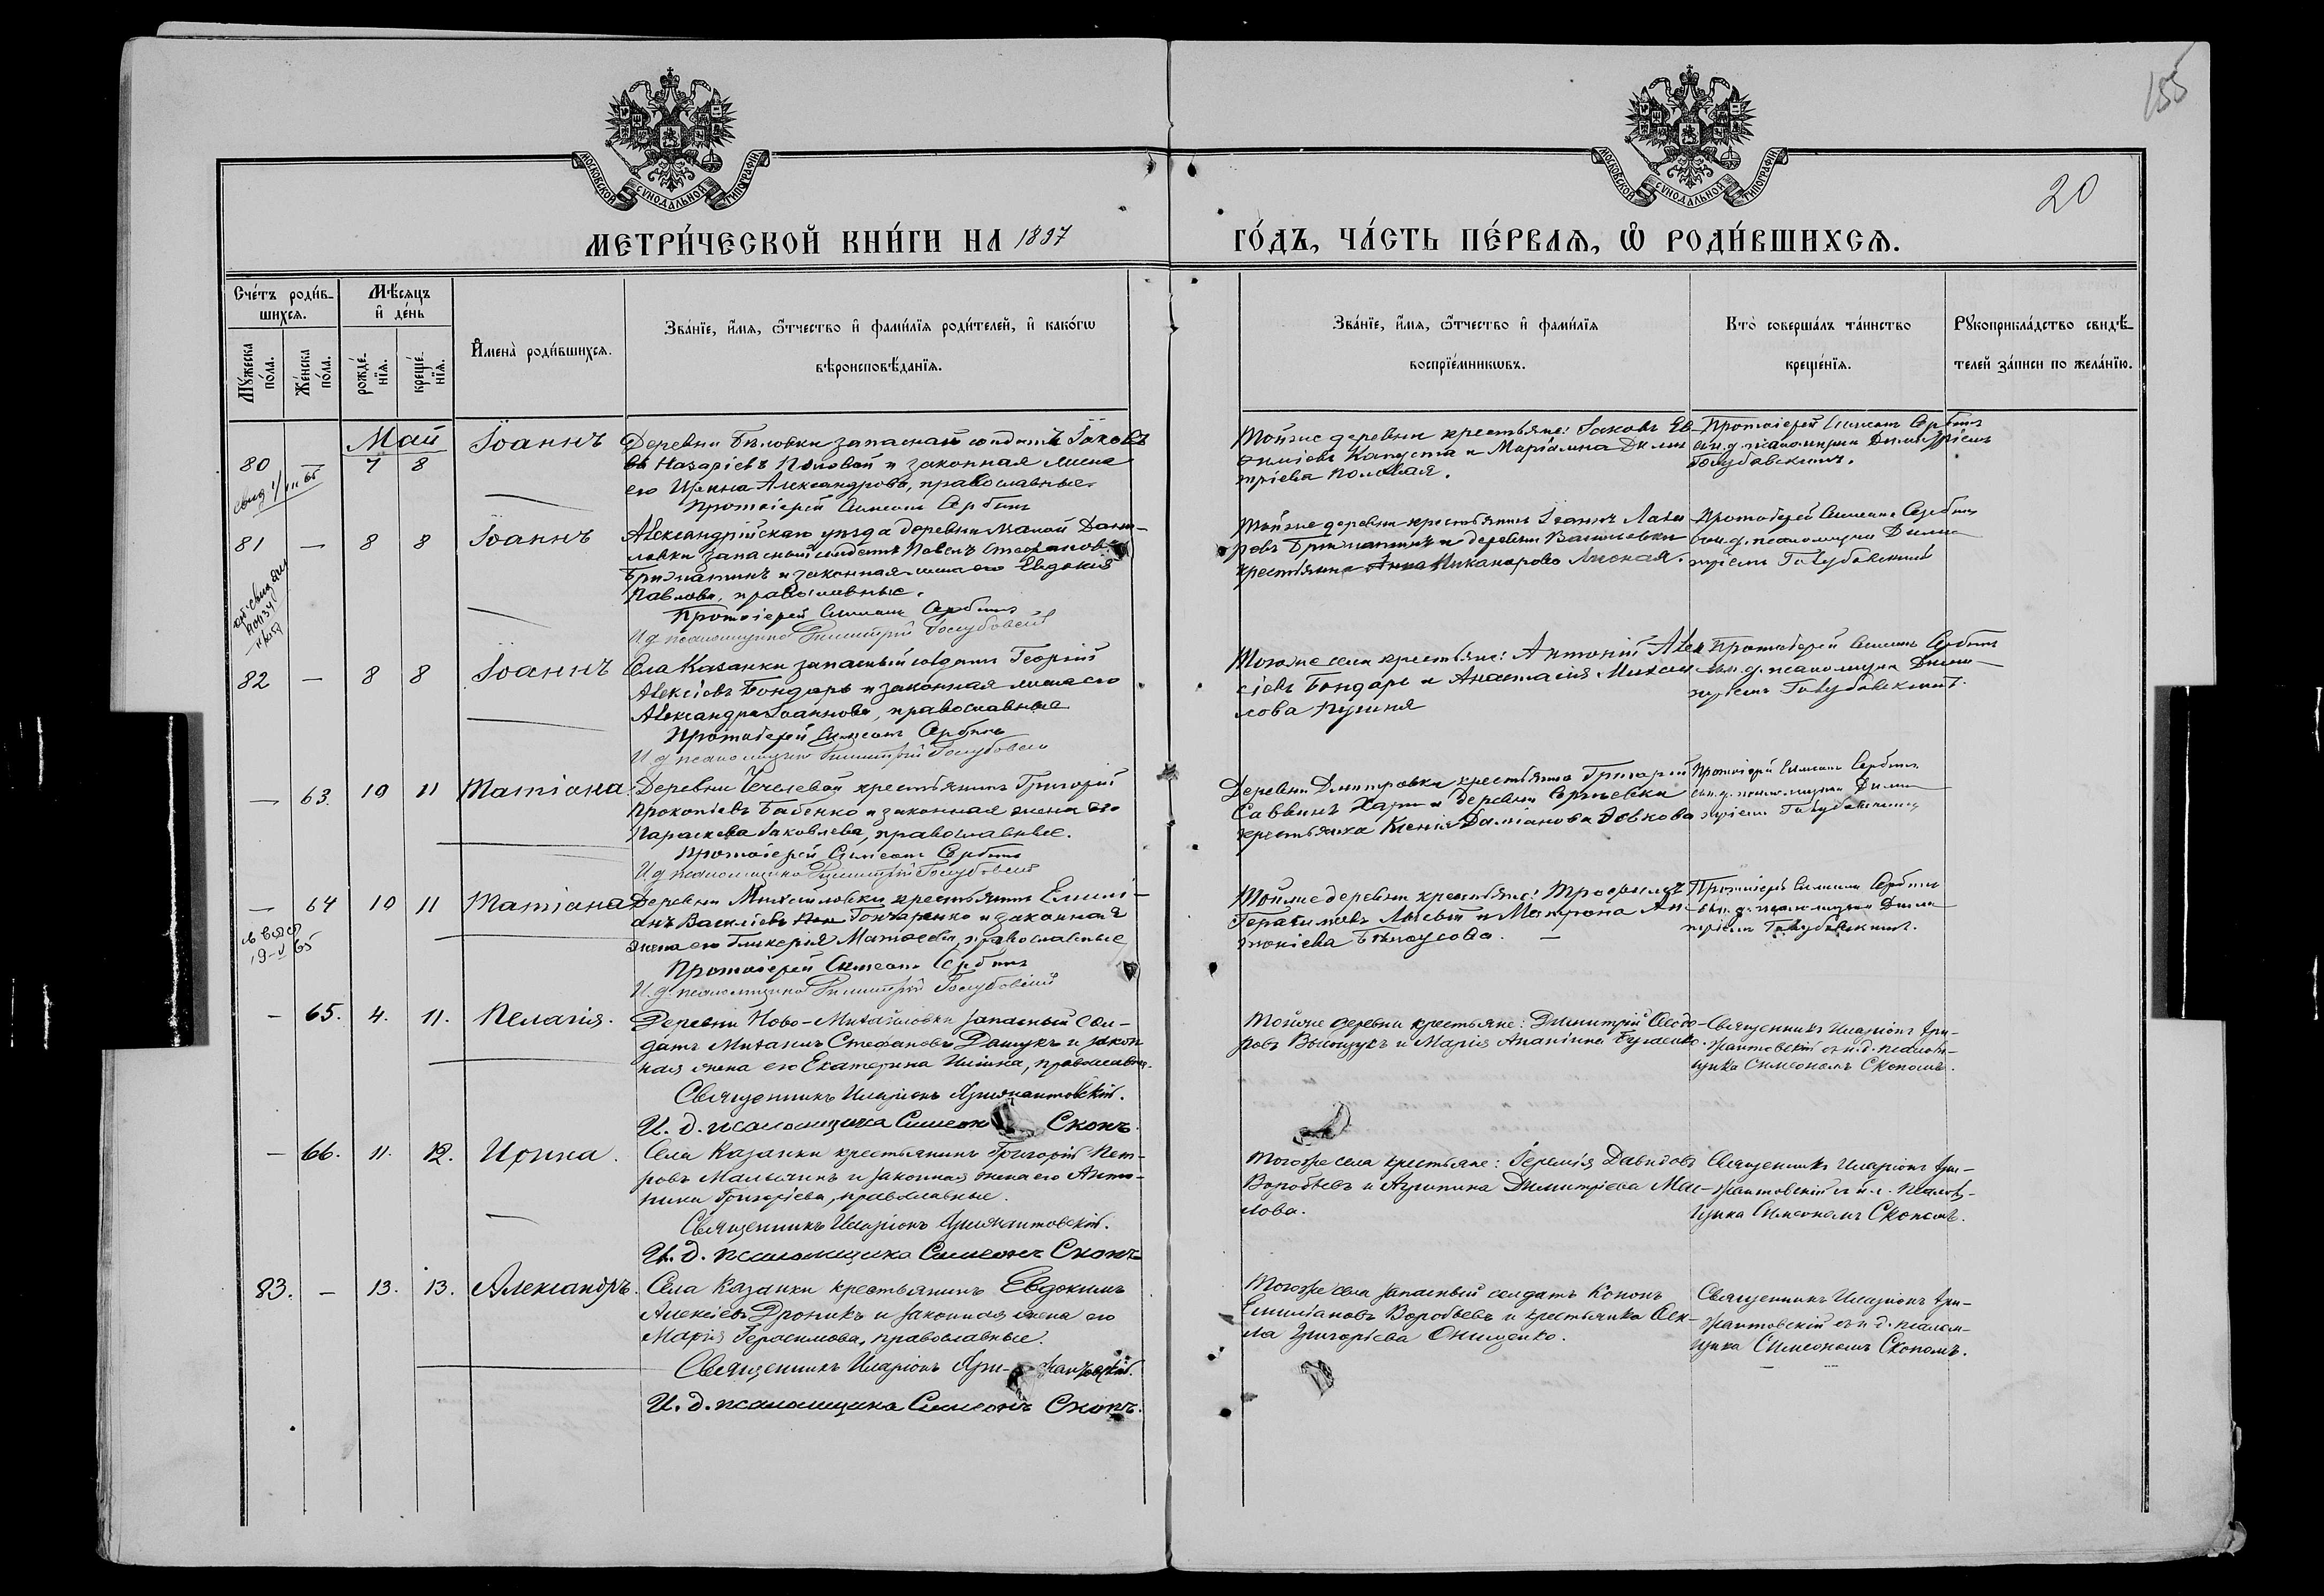 155
20
МОСКОВСКОЙ СѴНОДАЛЬНОЙ ТИПОГРАФІИ
МОСКОВСКОЙ СѴНОДАЛЬНОЙ ТИПОГРАФІИ
МЕТРИ́ЧЕСКОЙ КНИ́ГИ НА 1897
ГО́ДЪ, ЧА́СТЬ ПЕ́РВАѦ, Ѽ РОДИ́ВШИХСѦ.
Сче́тъ роди́в-
шихсѧ.
Мꙋ́жеска по́ла.
Же́нска по́ла.
Мѣ́сѧцъ и҆ де́нь
рожде́-нїѧ.
креще́-нїѧ.
И҆мена̀ роди́вшихсѧ.
Зва́нїе, и҆́мѧ, ѻ҆́тчество и҆ фами́лїѧ роди́телей, и҆ како́гѡ
вѣроисповѣ́данїѧ.
Зва́нїе, и҆́мѧ, ѻ҆́тчество и҆ фами́лїѧ
воспрїе́мникѡвъ.
Кто̀ соверша́лъ та́инство
креще́нїѧ.
Рꙋкоприкла́дство свидѣ́-
телей за́писи по жела́нїю.
Май
80 — 7 8 Іоаннъ
Деревни Бѣловки запасной солдатъ Іаковъ
Назаріевъ Половой и законная жена
его Ирина Александрова, православные.
Протоіерей Симеонъ Сербинъ
Тойже деревни крестьяне: Іаковъ Ев-
фиміевъ Капуста и Маріамна Дими
тріева Половая.
Протоіерей Симеонъ Сербинъ
съ и. д. псаломщика Димитріемъ
Голубовскимъ.
81 — 8 8 Іоаннъ
Александрійскаго уѣзда деревни Малой
запасный солдатъ Павелъ Стефановъ
и законная жена его Евдокія
Павлова, православные.
Протоіерей Симеонъ Сербинъ
И. д. псаломщика Димитрій Голубовскій
Тойже деревни крестьянинъ Іоаннъ
и деревни
крестьянка Анна Никанорова
Протоіерей Симеонъ Сербинъ
съ и. д. псаломщика Дими-
тріемъ Голубовскимъ
82 — 8 8 Іоаннъ
Села Казанки запасный солдатъ Георгій
Алексіевъ Бондарь и законная жена его
Александра Іоаннова, православные
Протоіерей Симеонъ Сербинъ
И. д. псаломщика Димитрій Голубовскій
Тогоже села крестьяне: Антоній Алек
сіевъ Бондарь и Анастасія Михаи
лова
Протоіерей Симеонъ Сербинъ
съ и. д. псаломщика Дими-
тріемъ Голубовскимъ.
— 63 10 11 Татіана
Деревни Чечелевой крестьянинъ Григорій
Прокопіевъ Бабенко и законная жена его
Параскева Іаковлева, православные.
Протоіерей Симеонъ Сербинъ
И. д. псаломщика Димитрій Голубовскій
Деревни Дмитровки крестьянинъ Григорій
Саввинъ и деревни
крестьянка Ксенія Даміанова
Протоіерей Симеонъ Сербинъ
съ и. д. псаломщика Дими-
тріемъ Голубовскимъ
— 64 10 11 Татіана
Деревни Михайловки крестьянинъ Емилі-
анъ Василіевъ Гончаренко и законная
жена его Гликерія Матвеева, православные
Протоіерей Симеонъ Сербинъ
И. д. псаломщика Димитрій Голубовскій
Тойже деревни крестьяне: Трофимъ
Герасимовъ и Матрона Ан-
тоніева Бѣлоусова. —
Протоіерей Симеонъ Сербинъ
съ и. д. псаломщика Дими
тріемъ Голубовскимъ.
— 65. 4. 11. Пелагія.
Деревни Ново-Михайловки запасный сол-
датъ Михаилъ Стефановъ Дащукъ и закон-
ная жена его Екатерина Ильина, православн.
Священникъ Иларіонъ Хрижантовскій.
И. д. псаломщика Симеонъ Скопъ.
Тойже деревни крестьяне: Димитрій Ѳеодо-
ровъ и Марія Ананіина
Священникъ Иларіонъ Хри-
жантовскій съ и. д. псалом-
щика Симеономъ Скопомъ.
— 66. 11. 12. Ирина.
Села Казанки крестьянинъ Григорій Пет-
ровъ и законная жена его Анто-
нина Григоріева, православные.
Священникъ Иларіонъ Хрижантовскій.
И. д. псаломщика Симеонъ Скопъ
Тогоже села крестьяне: Іеремія Давидовъ
Воробьевъ и Агрипина Димитріева Мас-
лова.
Священникъ Иларіонъ Хри-
жантовскій съ и. д. псалом-
щика Симеономъ Скопомъ.
83. — 13. 13. Александръ.
Села Казанки крестьянинъ Евдокимъ
Алексіевъ Дроникъ и законная жена его
Марія Герасимова, православные.
Священникъ Иларіонъ Хрижантовскій.
И. д. псаломщика Симеонъ Скопъ.
Тогоже села запасный солдатъ Кононъ
Емиліановъ Воробьевъ и крестьянка Ѳек-
ла Григоріева Онищенко.
Священникъ Иларіонъ Хри-
жантовскій съ и. д. псалом-
щика Симеономъ Скопомъ.